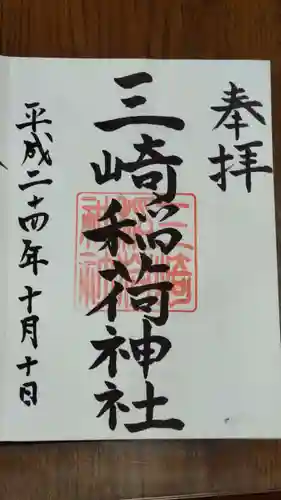 奉拝
三崎稲荷神社
平成二十四年十月十日
三崎
稲荷
神社